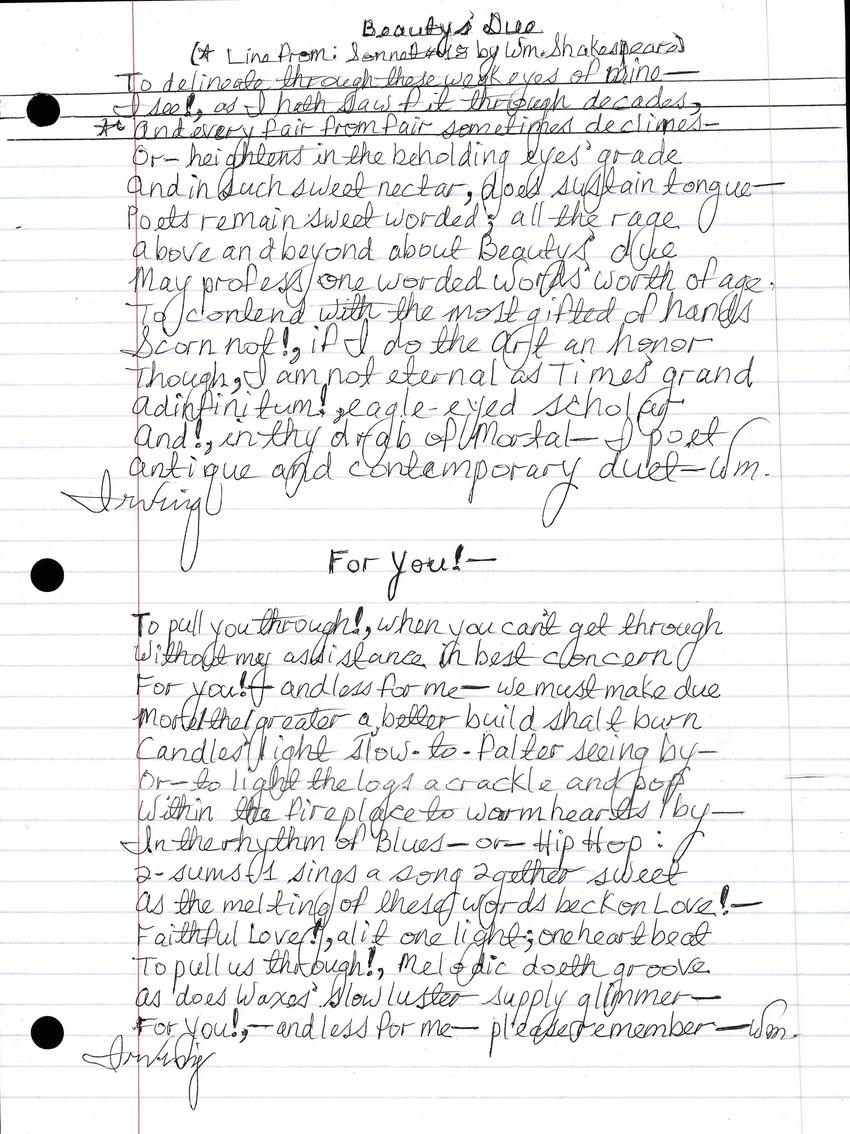 Beautys' Due
(* Line from: Sonnet #18 by Wm. Shakespeare)
To delineate through these weak eyes of mine—
I see!, as I hath saw fit through decades,
* And every fair from fair sometimes declines—
Or— heightens in the beholding eyes' grade
And in such sweet nectar, does sustain tongue—
Poets remain sweet worded; all the rage
above and beyond about Beautys' due
May profess one worded words' worth of age.
To contend with the most gifted of hands
Scorn not!, if I do the Art an honor
Though, I am not eternal as Times' grand
adinfinitum!, eagle-eyed scholar
And!, in thy drab of Mortal— I poet
antique and contemporary duet— Wm.
Irving
For You!—
To pull you through!, when you can't get through
Without my assistance in best concern
For you!— and less for me— we must make due
More the greater a better build shalt burn
Candles' light slow-to-falter seeing by—
Or— to light the logs a crackle and pop
Within the fireplace to warm hearts by—
In the rhythm of Blues— or— Hip Hop:
2-sums-1 sings a song 2gether sweet
as the melting of these words beckon Love!—
Faithful Love!, alit one light; one heartbeat
To pull us through!, Melodic doeth groove
as does Waxes' slow luster supply glimmer—
For you!,— and less for me— please remember— Wm.
Irving